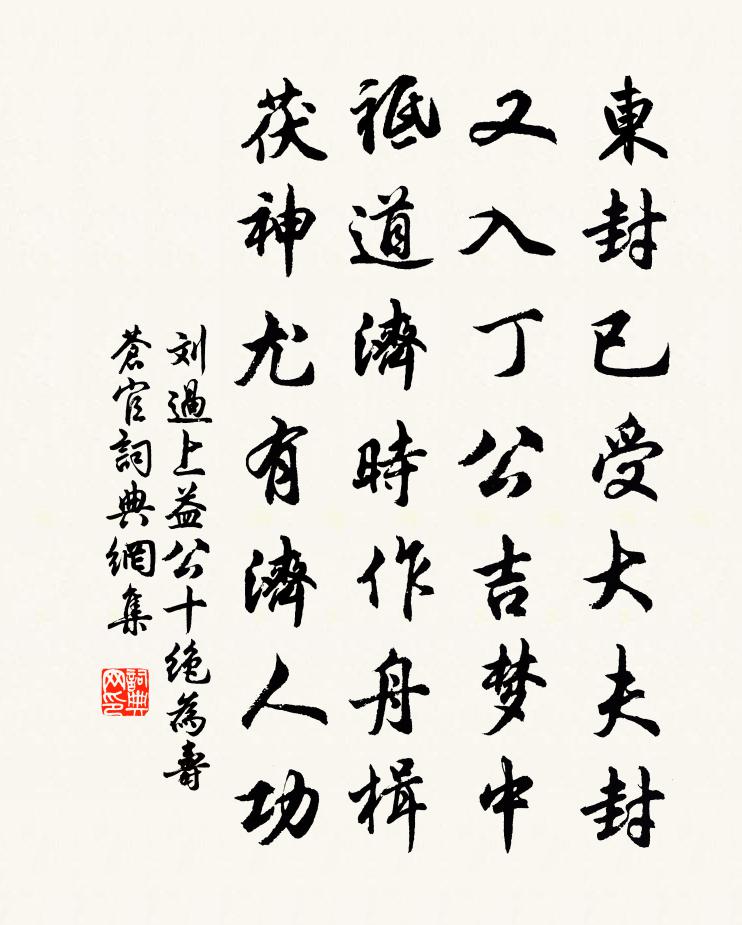 東封已受大夫封
又入丁公吉梦中
祗道濟時作舟楫
茯神尤有濟人功
刘過上益公十絶為壽
蒼官詞典網集
詞典
网印